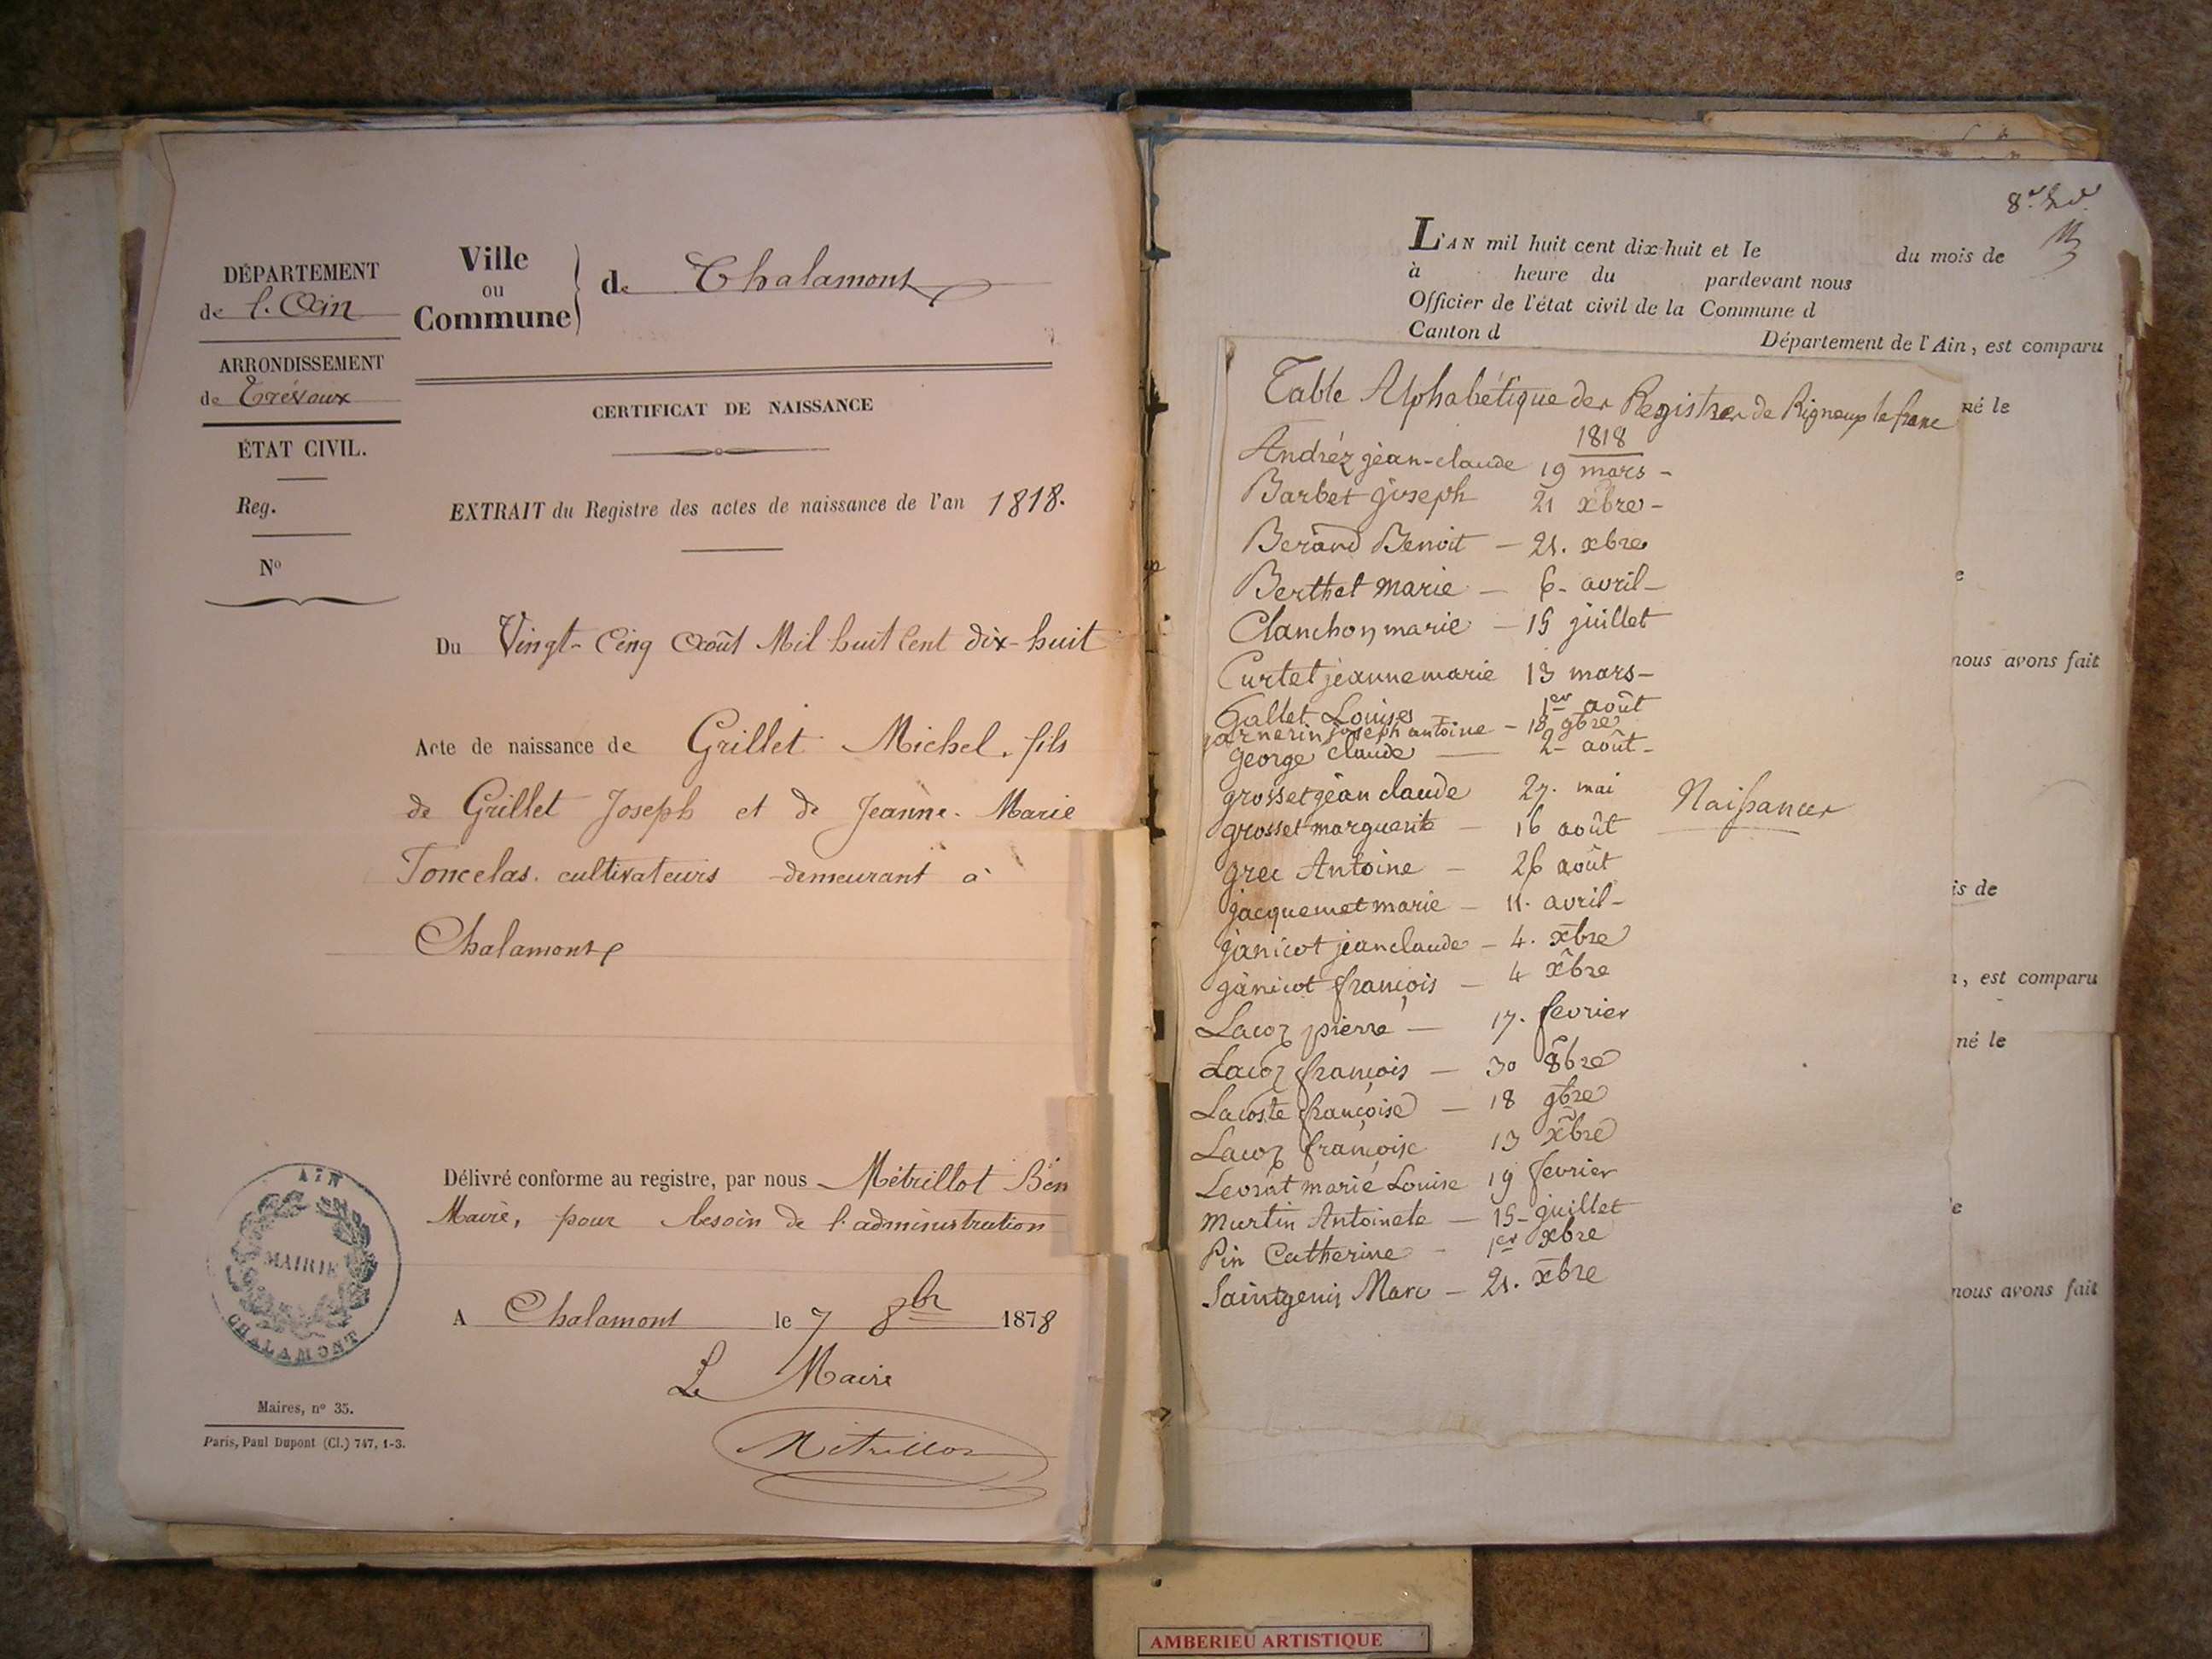 DÉPARTEMENT
de l'Ain
ARRONDISSEMENT
de Trévoux
ÉTAT CIVIL.
Reg.
Nº
Ville
ou
Commune
de Chalamont
CERTIFICAT DE NAISSANCE
EXTRAIT du Registre des actes de naissance de l'an 1818.
Du Vingt-Cinq Août Mil huit Cent dix-huit
Acte de naissance de Grillet Michel, fils
de Grillet Joseph et de Jeanne-Marie
Toncelas, cultivateurs demeurant à
Chalamont
Délivré conforme au registre, par nous Métrillot Ben
Maire, pour besoin de l'administration
A Chalamont le 7 8br 1878
Le Maire
Métrillot
AIN
MAIRIE
CHALAMONT
Maires, nº 35.
Paris, Paul Dupont (Cl.) 747, 1-3.
L'AN mil huit cent dix-huit et le du mois de
à heure du pardevant nous
Officier de l'état civil de la Commune d
Canton d Département de l'Ain, est comparu
né le
Table Alphabétique des Registres de Rigneux le franc
1818
Andréz jean-claude 19 mars -
Barbet joseph 21 xbre -
Berand Benoit - 21. xbre
Berthet marie - 6 - avril -
Clanchon marie - 15 juillet
Curtet jeanne marie 13 mars -
Gallet Louise 1er août
garnerin joseph antoine - 18 9bre
george claude - 2 - août -
grosset jean claude 27. mai
Naissances
grosset marguerite - 16 août
grec Antoine - 26 août
jacquemet marie - 11. avril -
janicot jean claude - 4. xbre
janicot françois - 4 xbre
Lacoz pierre - 17. fevrier
Lacoz françois - 30 8bre
Lacoste françoise - 18 9bre
Lacoz françoise 13 xbre
Levrat marie Louise 19 fevrier
Martin Antoinete - 15 - juillet
Pin Catherine - 1er xbre
Saintgenis Marc - 21. xbre
e
nous avons fait
is de
n, est comparu
né le
e
nous avons fait
AMBERIEU ARTISTIQUE